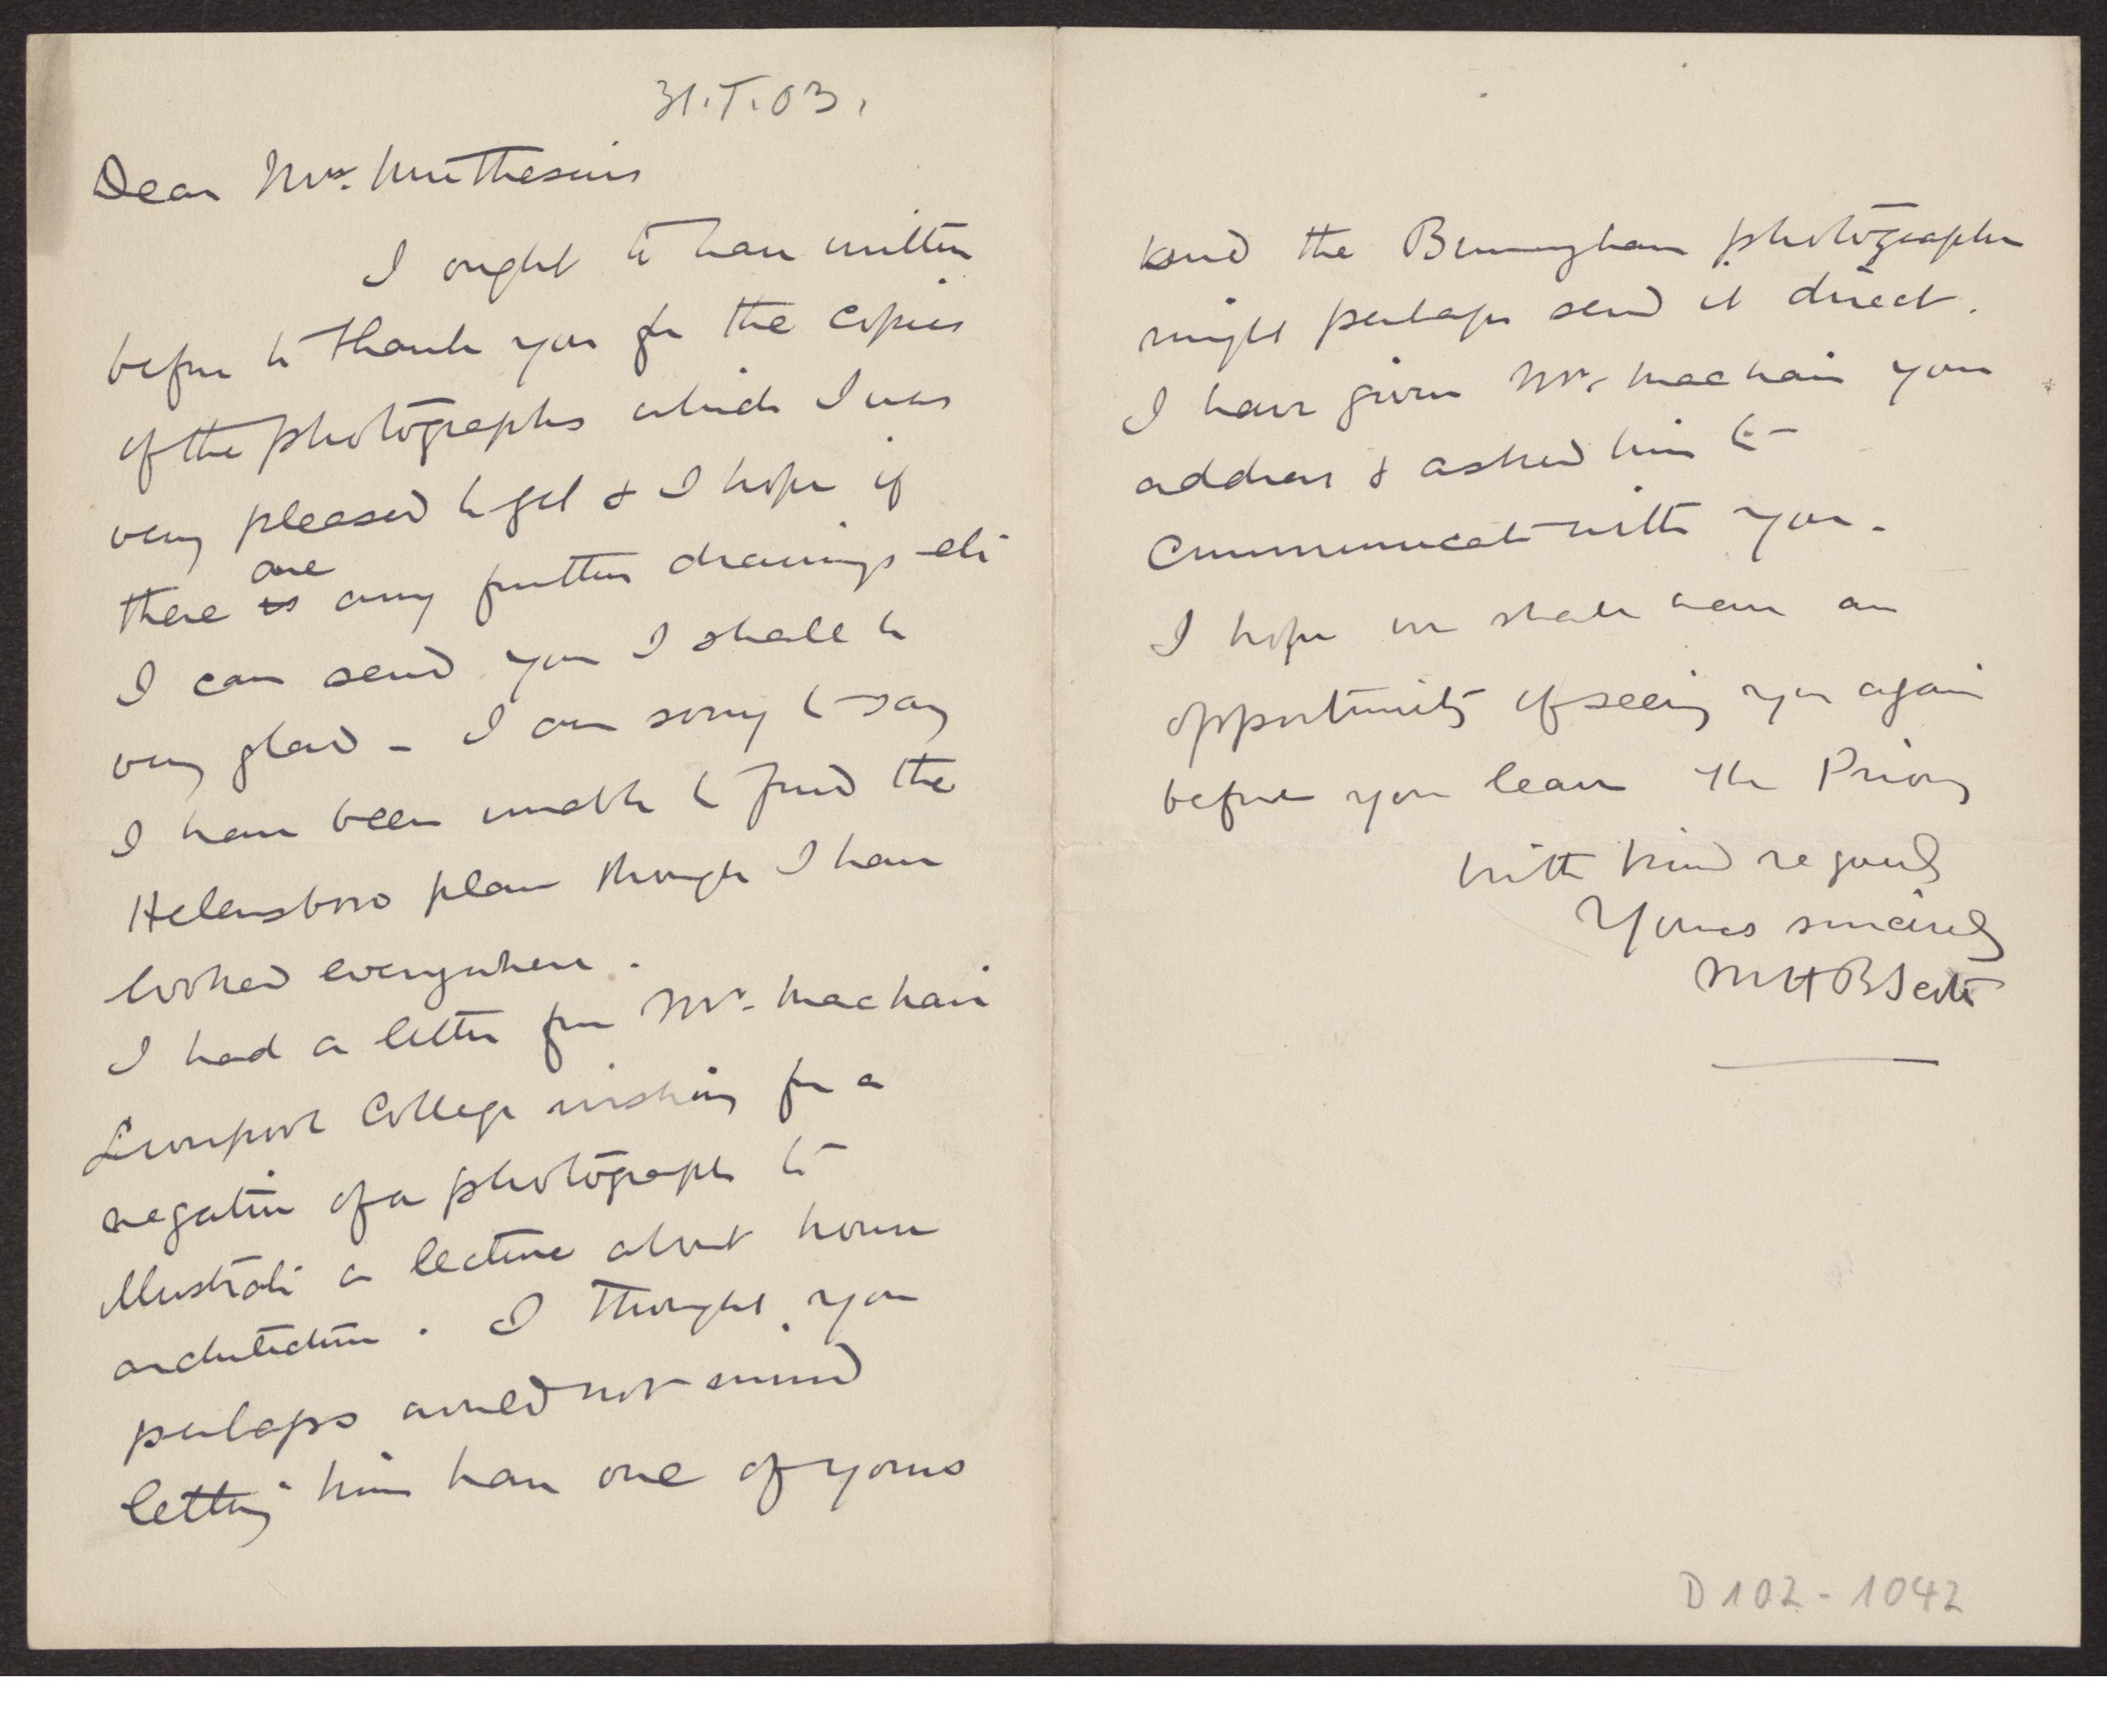 31.I.03.
Dear Mrs. Muthesius
I ought to have written
before to thank you for the copies
of the photographs which I was
very pleased to get & I hope if
are
there is any further drawings etc
I can send you I shall be
very glad - I am sorry to say
I have been unable to find the
Helensboro plan though I have
looked everywhere.
I had a letter from Mr.
Liverpool College wishing for a
negative of a photograph to
illustrate a lecture about house
architecture. I thought you
perhaps would not mind
letting him have one of yours
and the Birmingham photographer
might perhaps send it direct.
I have given Mr. your
address & asked him to
communicate with you.
I hope we shall have an
opportunity of seeing you again
before you leave the Priory
With kind regards
Yours sincerely
MHBScott
D 102 - 1042